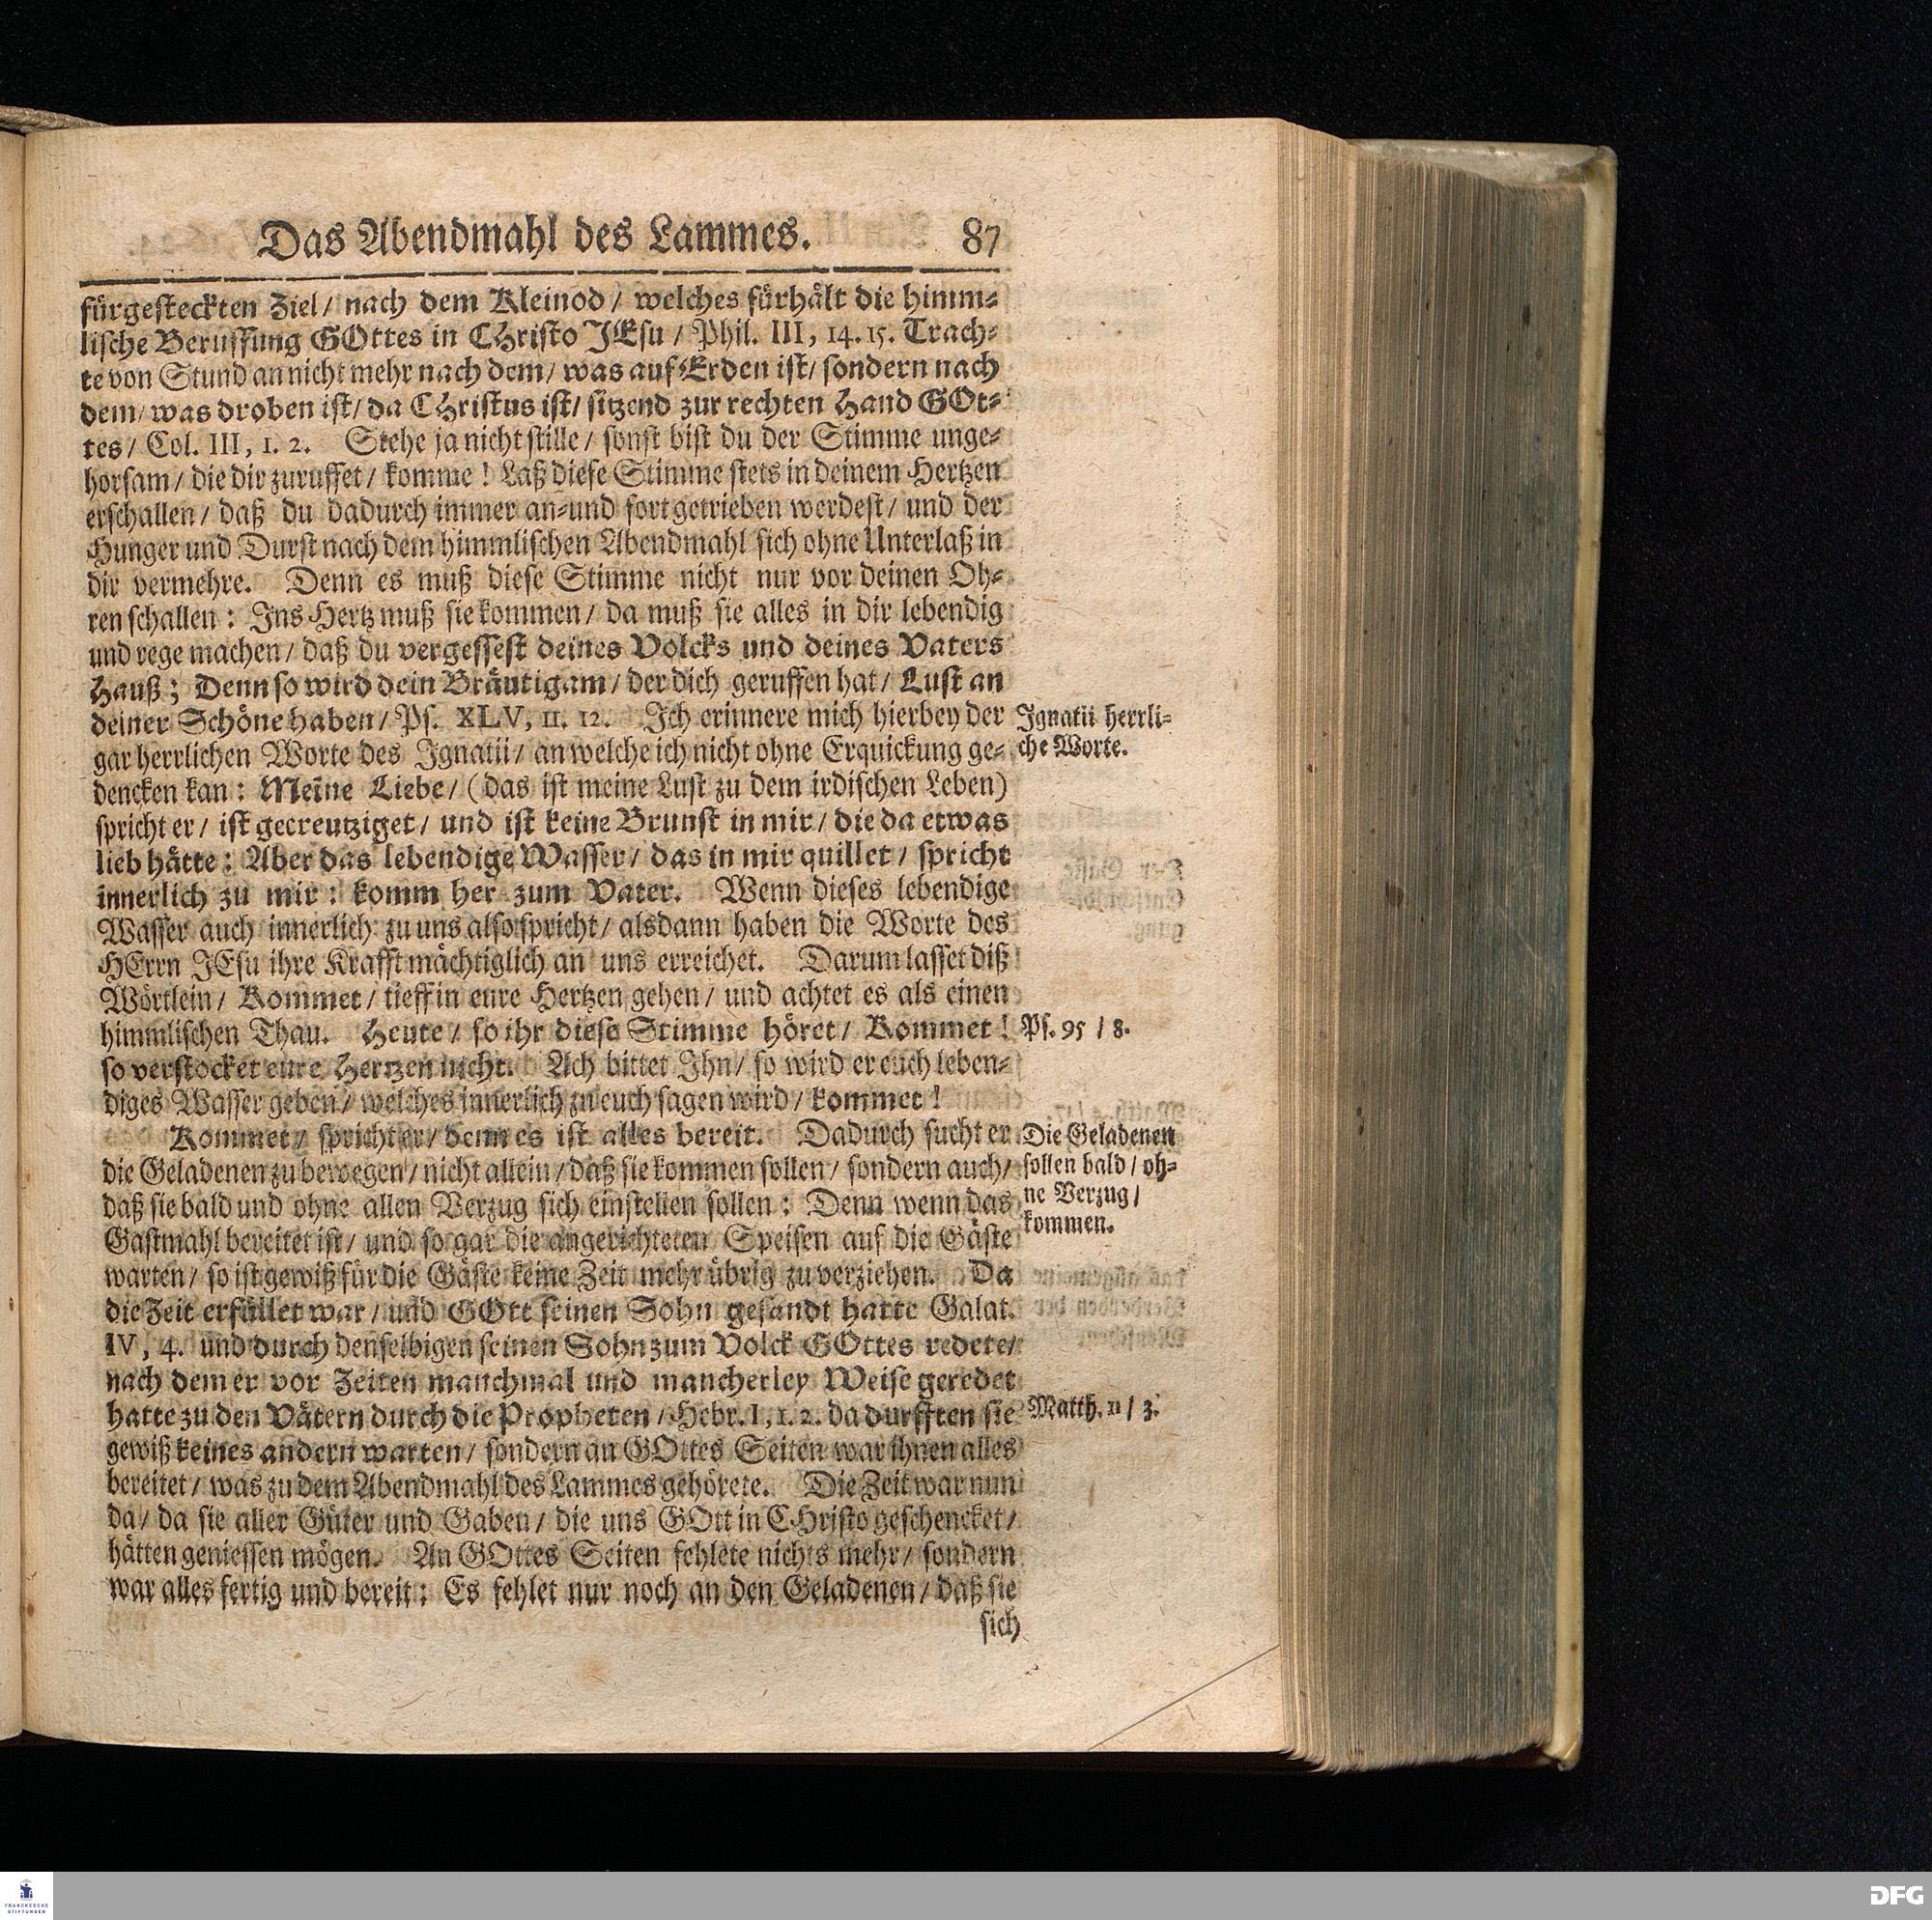 Das Abendmahl des Lammes. 87
fürgesteckten Ziel/ nach dem Kleinod/ welches fürhält die himm-
lische Beruffung GOttes in CHristo JEsu/ Phil. III, 14. 15. Trach-
te von Stund an nicht mehr nach dem/ was auf Erden ist/ sondern nach
dem/ was droben ist/ da CHristus ist/ sitzend zur rechten Hand GOt-
tes/ Col. III, 1. 2. Stehe ja nicht stille/ sonst bist du der Stimme unge-
horsam/ die dir zuruffet/ komme! Laß diese Stimme stets in deinem Hertzen
erschallen/ daß du dadurch immer an-und fortgetrieben werdest/ und der
Hunger und Durst nach dem himmlischen Abendmahl sich ohne Unterlaß in
dir vermehre. Denn es muß diese Stimme nicht nur vor deinen Oh-
ren schallen: Ins Hertz muß sie kommen/ da muß sie alles in dir lebendig
und rege machen/ daß du vergessest deines Volcks und deines Vaters
Hauß; Denn so wird dein Bräutigam/ der dich geruffen hat/ Lust an
deiner Schöne haben/ Ps. XLV, 11. 12. Ich erinnere mich hierbey der
gar herrlichen Worte des Ignatii/ an welche ich nicht ohne Erquickung ge-
dencken kan: Meine Liebe/ (das ist meine Lust zu dem irdischen Leben)
spricht er/ ist gecreutziget/ und ist keine Brunst in mir/ die da etwas
lieb hätte: Aber das lebendige Wasser/ das in mir quillet/ spricht
innerlich zu mir: komm her zum Vater. Wenn dieses lebendige
Wasser auch innerlich zu uns also spricht/ alsdann haben die Worte des
HErrn JEsu ihre Krafft mächtiglich an uns erreichet. Darum lasset diß
Wörtlein/ Kommet/ tieff in eure Hertzen gehen/ und achtet es als einen
himmlischen Thau. Heute/ so ihr diese Stimme höret/ Kommet!
so verstocket eure Hertzen nicht. Ach bittet Ihn/ so wird er euch leben-
diges Wasser geben/ welches innerlich zu euch sagen wird/ kommet!
Kommet/ spricht er/ denn es ist alles bereit. Dadurch sucht er
die Geladenen zu bewegen/ nicht allein/ daß sie kommen sollen/ sondern auch/
daß sie bald und ohne allen Verzug sich einstellen sollen: Denn wenn das
Gastmahl bereitet ist/ und so gar die angerichteten Speisen auf die Gäste
warten/ so ist gewiß für die Gäste keine Zeit mehr übrig zu verziehen. Da
die Zeit erfüllet war/ und GOtt seinen Sohn gesandt hatte Galat.
IV, 4. und durch denselbigen seinen Sohn zum Volck GOttes redete/
nach dem er vor Zeiten manchmal und mancherley Weise geredet
hatte zu den Vätern durch die Propheten/ Hebr. I, 1. 2. da durfften sie
gewiß keines andern warten/ sondern an GOttes Seiten war ihnen alles
bereitet/ was zu dem Abendmahl des Lammes gehörete. Die Zeit war nun
da/ da sie aller Güter und Gaben/ die uns GOtt in CHristo geschencket/
hätten geniessen mögen. An GOttes Seiten fehlete nichts mehr/ sondern
war alles fertig und bereit: Es fehlet nur noch an den Geladenen/ daß sie
sich
Ignatii herrli-
che Worte.
Ps. 95 / 8.
Die Geladenen
sollen bald/ oh-
ne Verzug/
kommen.
Matth. 11 / 3.
FRANCKESCHE
STIFTUNGEN
DFG